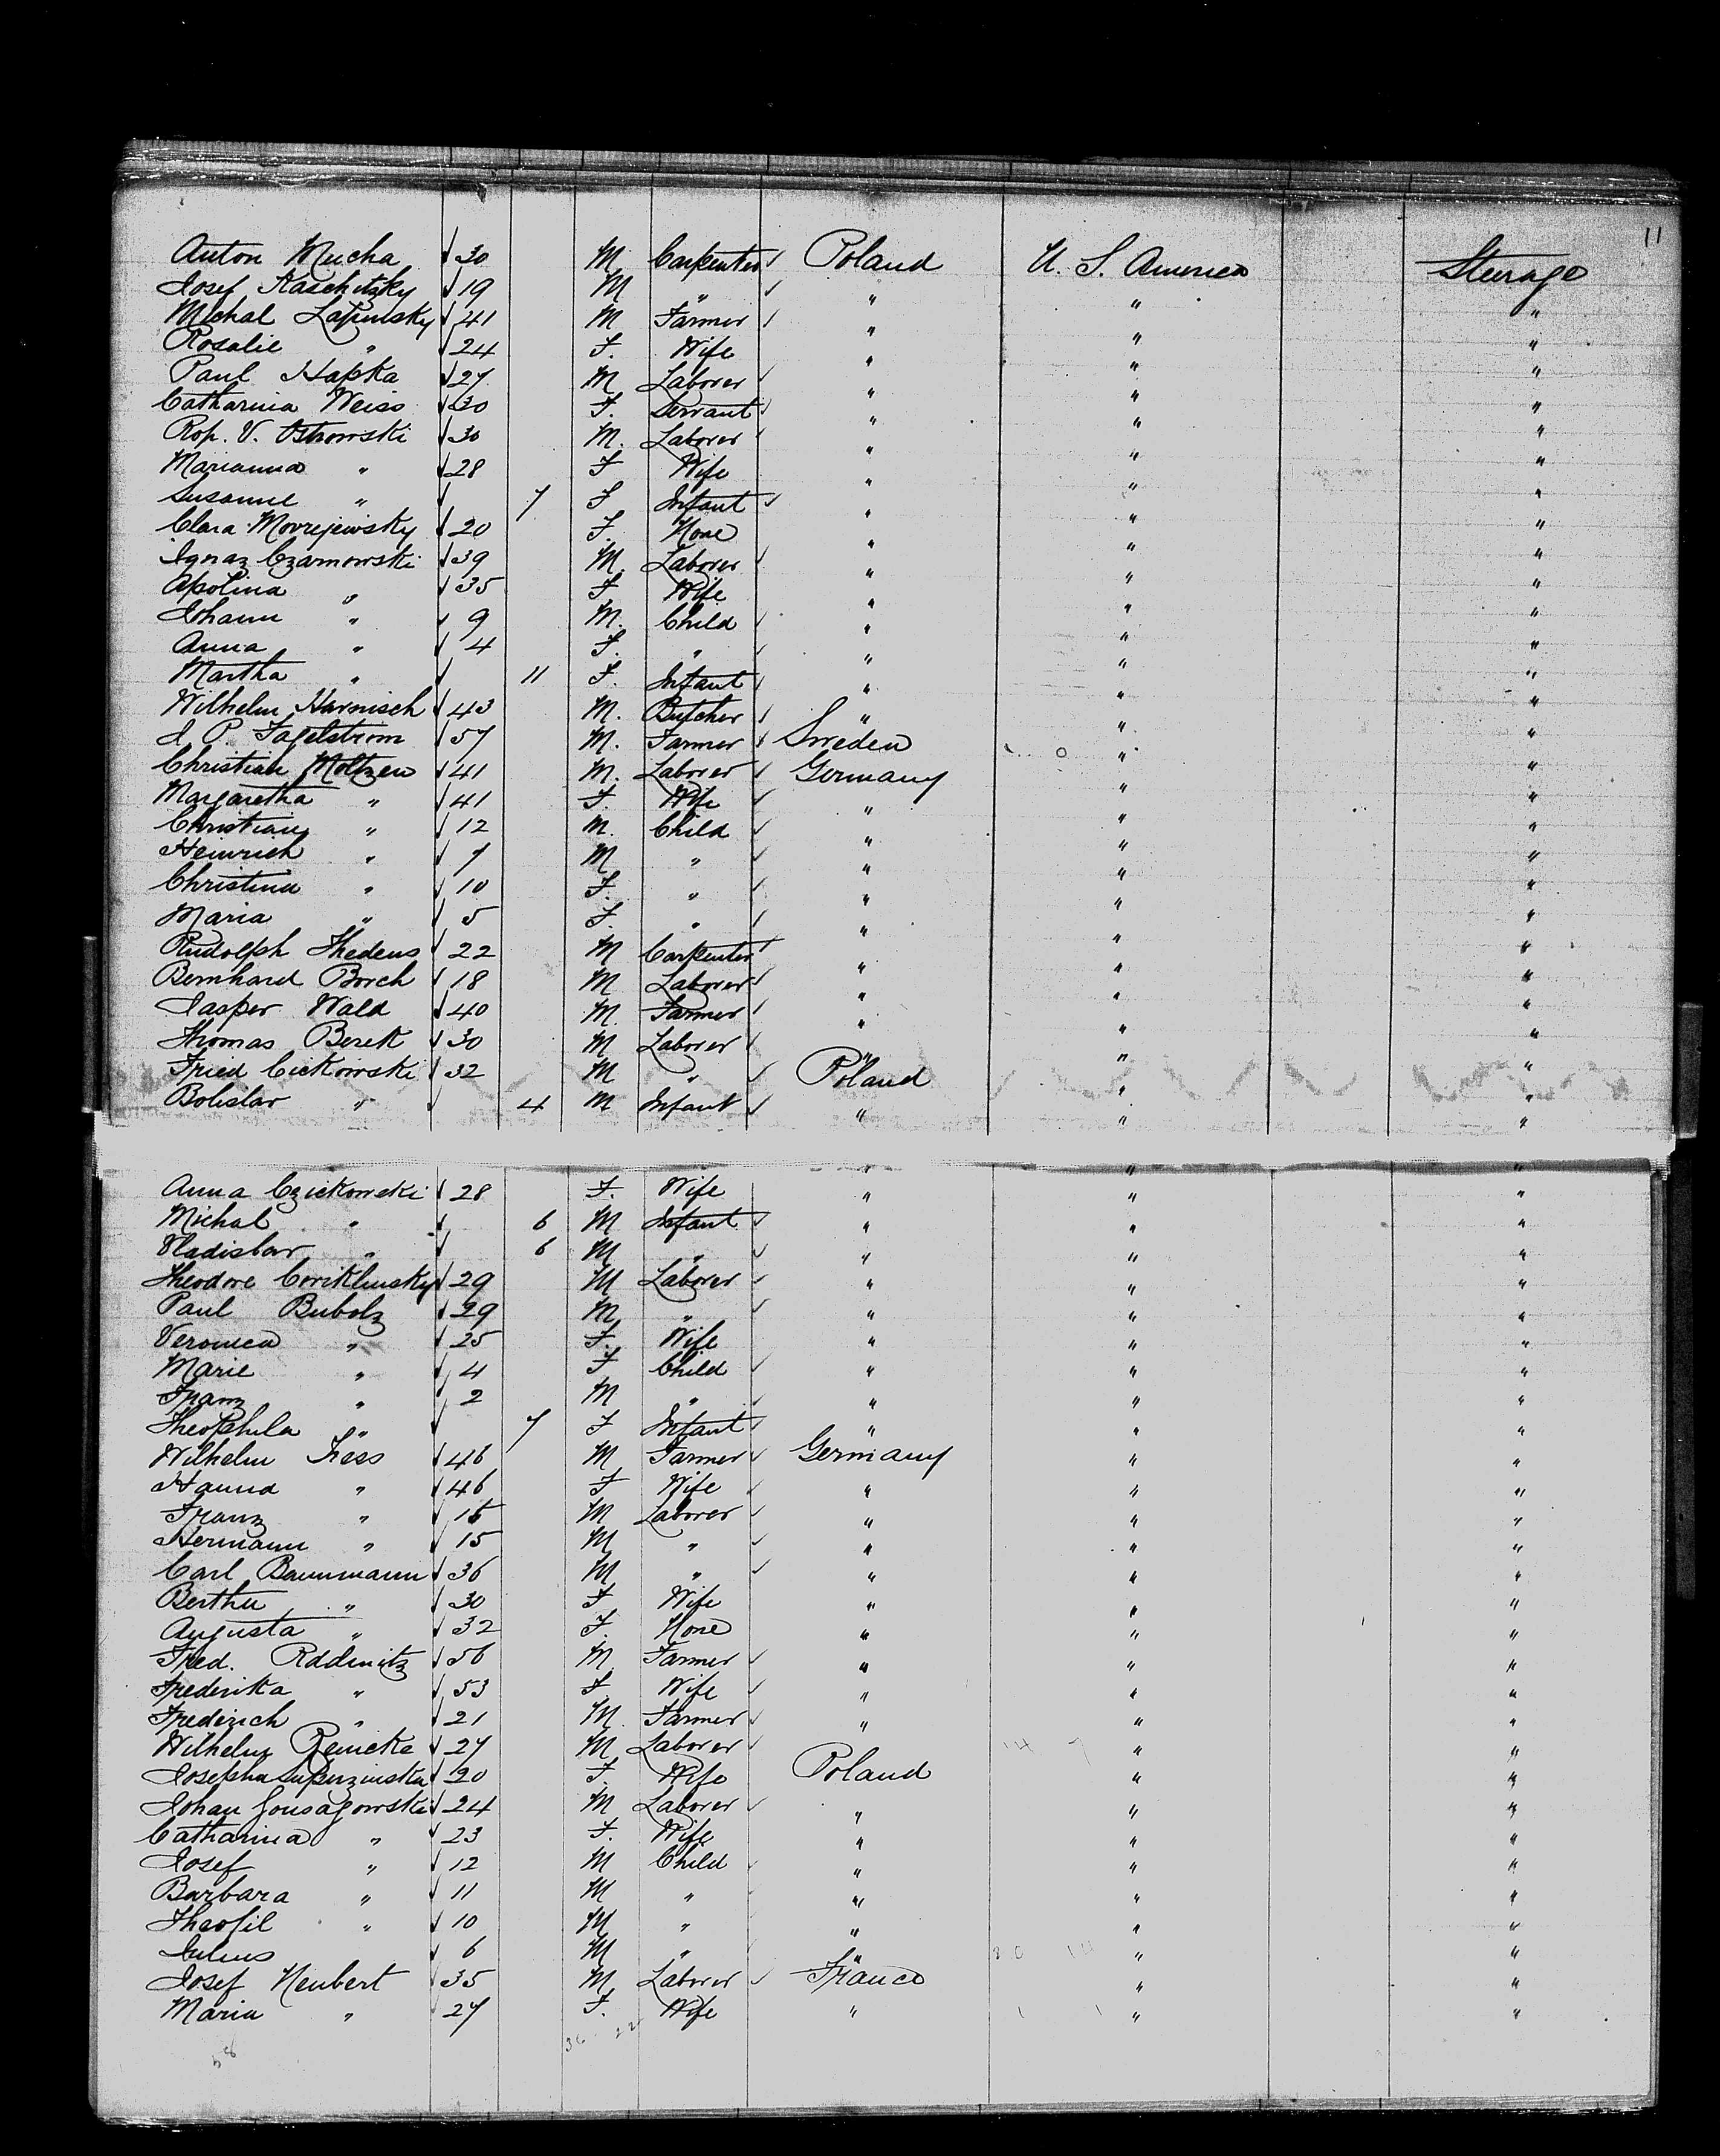 11
Anton Mucha 30 M. Carpenter Poland U. S. America Steerage
Josef Kaschitzky 19 M " " " "
Michal Lapinsky 41 M Farmer " " "
Rosalie " 24 F. Wife " " "
Paul Hapka 27 M Laborer " " "
Catharina Weiss 30 F. Servant " " "
Rop. V. Ostrowski 30 M. Laborer " " "
Marianna " 28 F Wife " " "
Susanne " 7 F Infant " " "
Clara Movrejewsky 20 F. None " " "
Ignaz Czarnowski 39 M. Laborer " " "
Apolina " 35 F. Wife " " "
Johann " 9 M. Child " " "
Anna " 4 F. " " " "
Martha " 11 F. Infant " " "
Wilhelm Harnisch 43 M. Butcher " " "
J. P. Fagelstrom 57 M. Farmer Sweden " "
Christian Moltzen 41 M. Laborer Germany " "
Margaretha " 41 F. Wife " " "
Christian " 12 M. Child " " "
Heinrich " 7 M " " " "
Christina " 10 F. " " " "
Maria " 5 F. " " " "
Rudolph Thedens 22 M Carpenter " " "
Bernhard Borch 18 M Laborer " " "
Jasper Wald 40 M Farmer " " "
Thomas Berek 30 M Laborer " " "
Fried Cickowski 32 M " Poland " "
Boleslav " 4 M Infant " " "
Anna Czickowski 28 F. Wife " " "
Michal " 6 M Infant " " "
Vladislav " 6 M " " " "
Theodore 29 M Laborer " " "
Paul Bubolz 29 M " " " "
Veronica " 25 F. Wife " " "
Marie " 4 F Child " " "
Franz " 2 M " " " "
Theophila " 7 F Infant " " "
Wilhelm Hess 46 M Farmer Germany " "
Hanna " 46 F Wife " " "
Franz " 16 M Laborer " " "
Hermann " 15 M " " " "
Carl Baummann 36 M " " " "
Bertha " 30 F Wife " " "
Augusta " 32 F. None " " "
Fred. 56 M. Farmer " " "
Frederika " 53 F Wife " " "
Frederich " 21 M. Farmer " " "
Wilhelm Reincke 27 M Laborer " " "
Josepha 20 F. Wife Poland " "
Johan 24 M Laborer " " "
Catharina " 23 F. Wife " " "
Josef " 12 M Child " " "
Barbara " 11 M " " " "
Theofil " 10 M " " " "
Julius 6 M " " " "
Josef Neubert 35 M. Laborer France " "
Maria " 27 F. Wife " " "
58